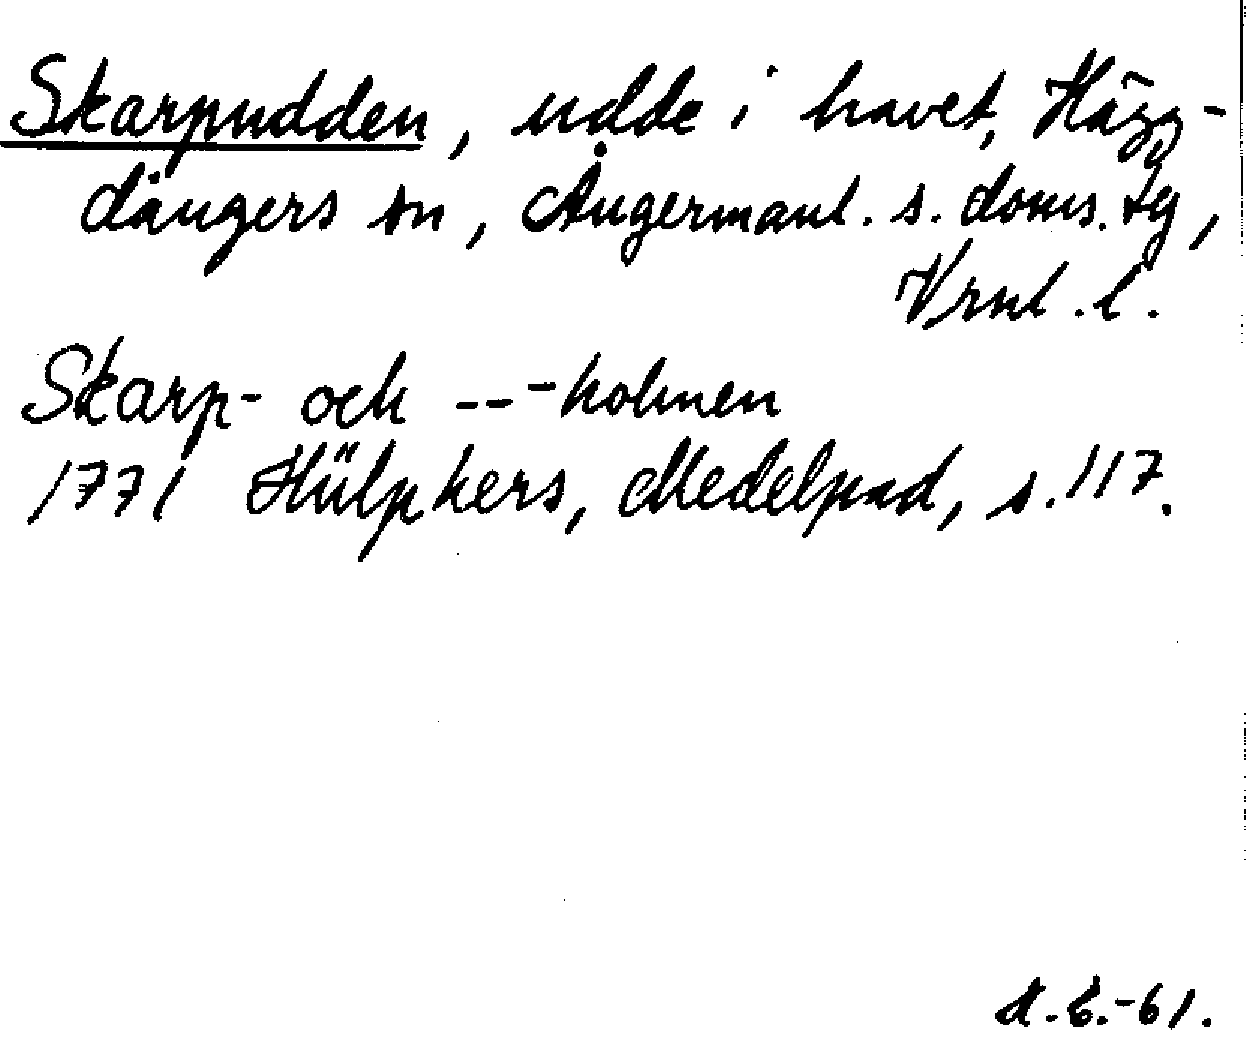 Skarpudden, udde i havet, Hägg-
dångers sn, Ångermanl. s. doms. tg,
Vrnl. l.
Skarp- och -- -holmen
1771 Hülphers, Medelpad, s. 117.
-61.